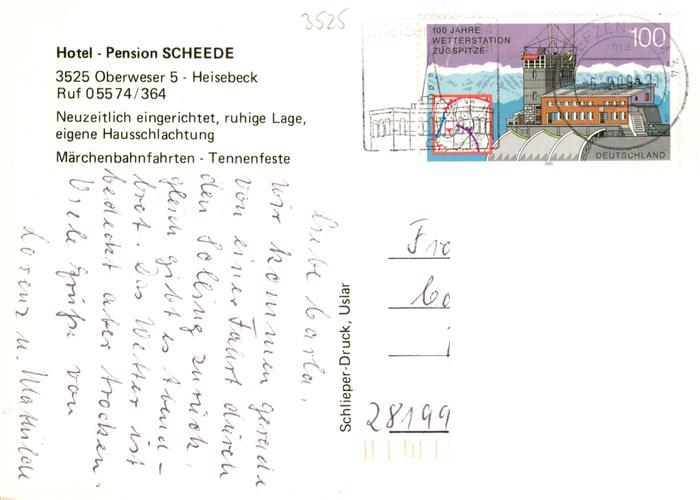 3525
Hotel - Pension SCHEEDE
3525 Oberweser 5 - Heisebeck
Ruf 05574/364
Neuzeitlich eingerichtet, ruhige Lage,
eigene Hausschlachtung
Märchenbahnfahrten - Tennenfeste
Liebe Carla,
wir kommen gerade
von einer Fahrt durch
den Solling zurück,
gleich gibt es Abend-
brot. Das Wetter ist
bedeckt aber trocken.
Viele Grüße von
Lorenz u. Mathilde
Schlieper-Druck, Uslar
100 JAHRE
WETTERSTATION
ZUGSPITZE
100
DEUTSCHLAND
34
Fra
Ca
28199